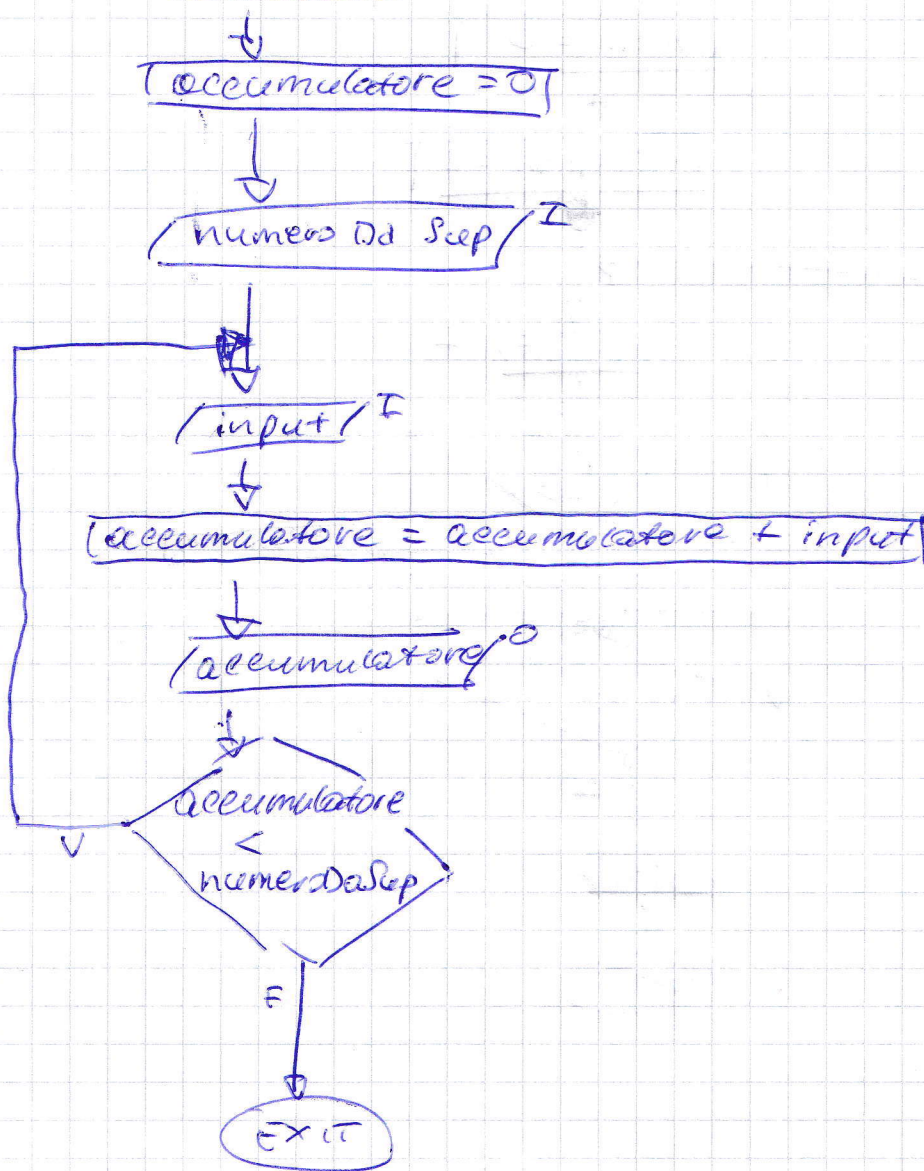 accumulatore = 0
numero Da Sup I
input I
accumulatore = accumulatore + input
accumulatore O
accumulatore
<
numeroDaSup
V
F
EXIT